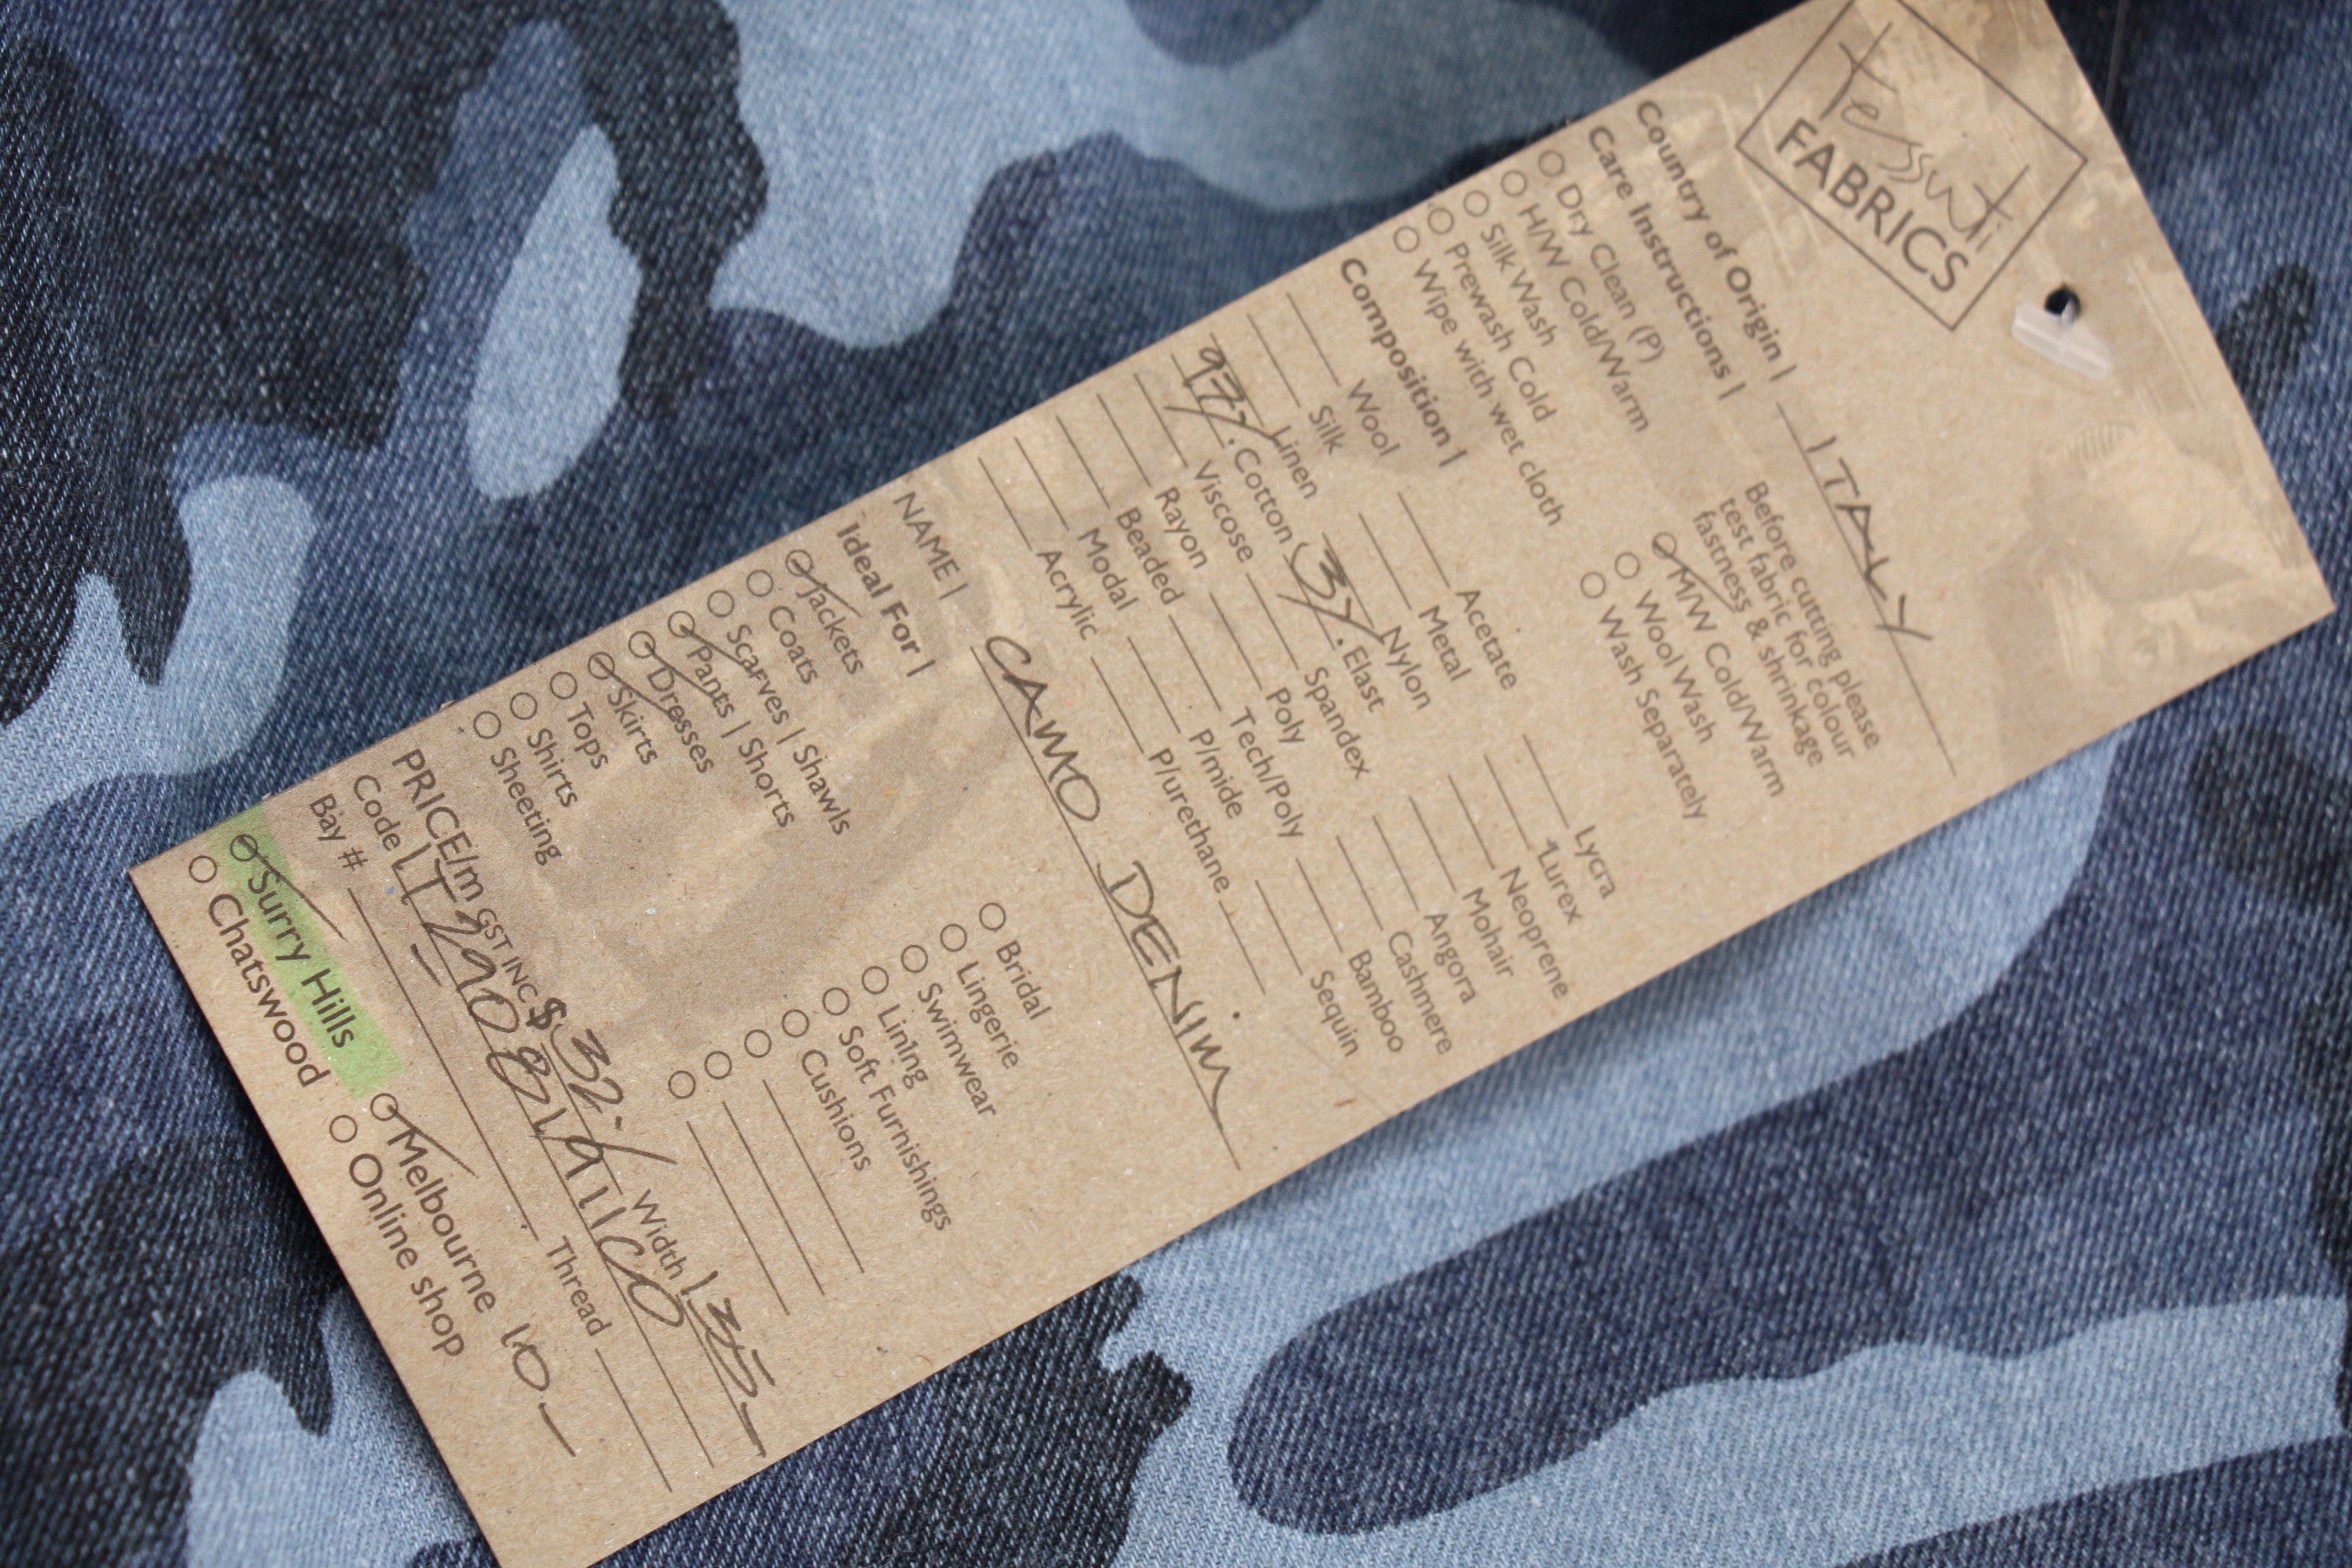 tessuti
FABRICS
Country of Origin | ITALY
Care Instructions |
Before cutting please
test fabric for colour
fastness & shrinkage
Dry Clean (P)
H/W Cold/Warm
Silk Wash
Prewash Cold
Wipe with wet cloth
M/W Cold/Warm
Wool Wash
Wash Separately
Composition |
Wool
Silk
Linen
97% Cotton
Viscose
Rayon
Beaded
Modal
Acrylic
Acetate
Metal
Nylon
3% Elast
Spandex
Poly
Tech/Poly
P/mide
P/urethane
Lycra
Lurex
Neoprene
Mohair
Angora
Cashmere
Bamboo
Sequin
NAME | CAMO DENIM
Ideal For |
Jackets
Coats
Scarves | Shawls
Pants | Shorts
Dresses
Skirts
Tops
Shirts
Sheeting
Bridal
Lingerie
Swimwear
Lining
Soft Furnishings
Cushions
PRICE/m GST INC $ 32.- Width 135
Code
Bay # Thread
Surry Hills Melbourne 10
Chatswood Online shop